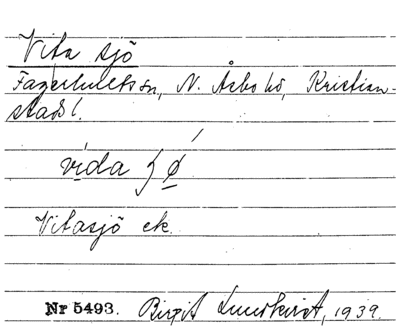 Vita sjö
Fagerhults sn, N. Åsbo hd, Kristian-
stads l.
vida ʃø
Vitasjö ek.
Nr 5493. Birgit Lundkvist, 1939.